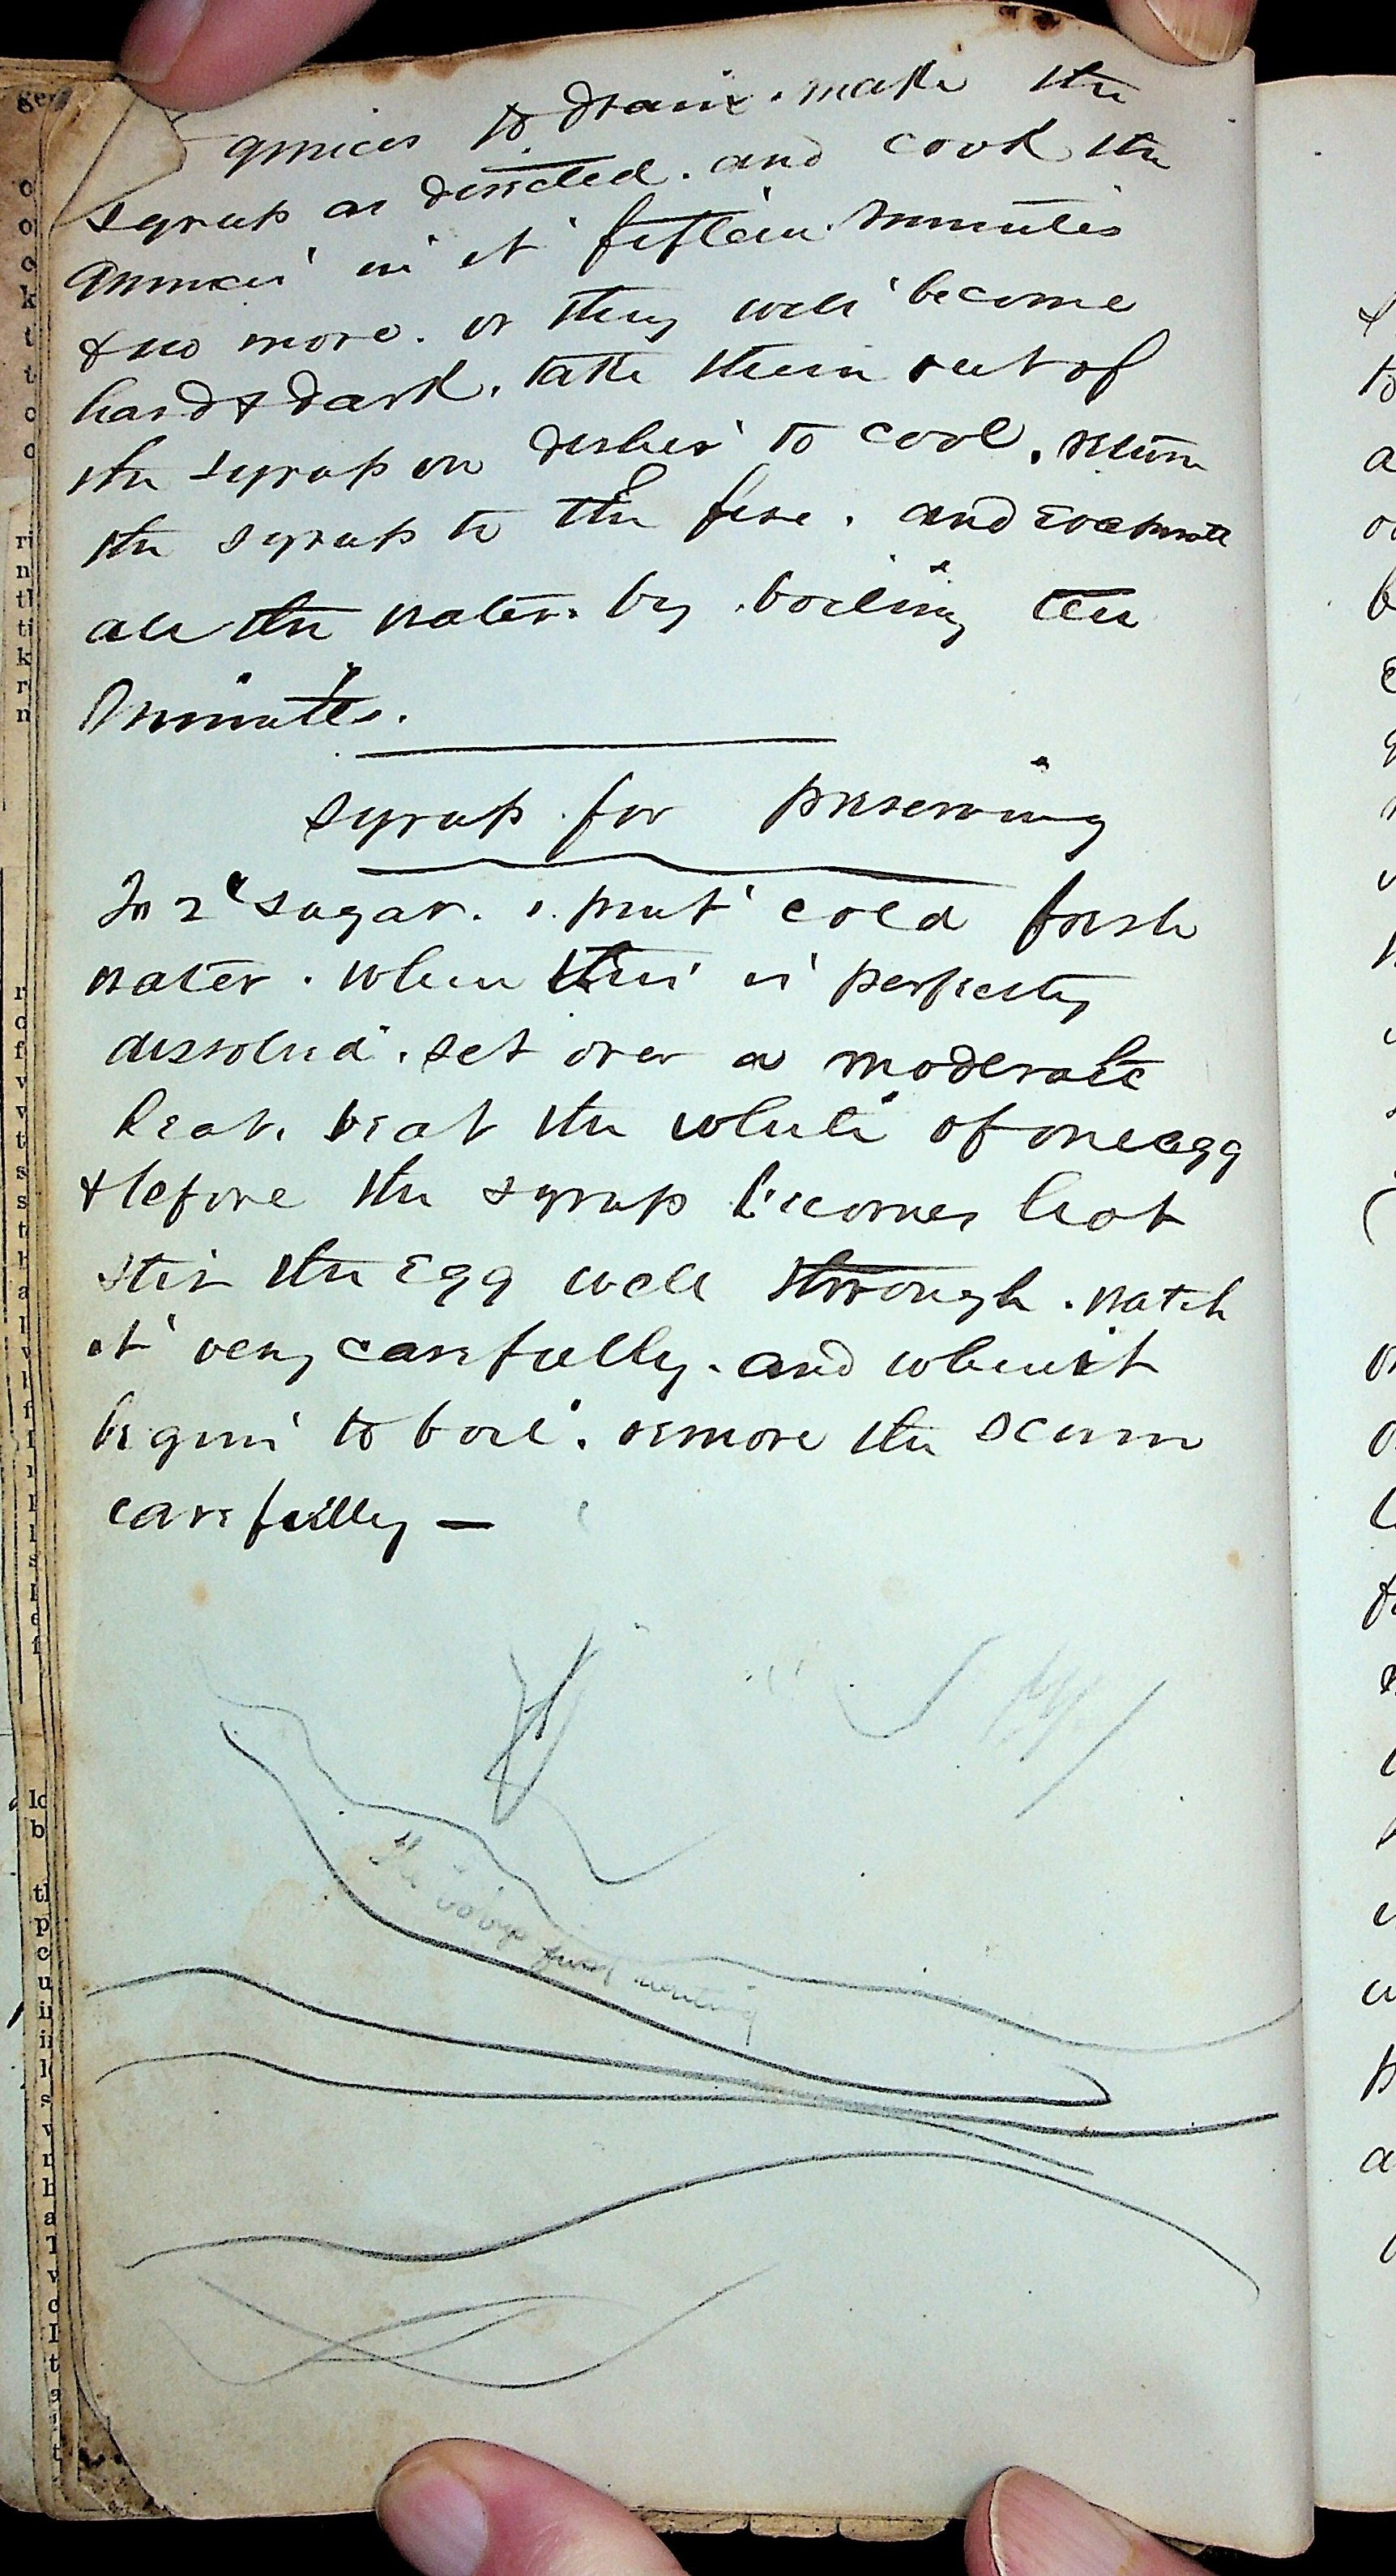 quinces to drain. make the
syrup as directed. and cook the
quinces in it fifteen minutes
& no more. or they will become
hard & dark. take them out of
the syrup on dishes to cool. return
the syrup to the fire. and evaporate
all the water. by boiling ten
minutes.
syrup for preserving
In 2 sugar. 1. pint cold fresh
water. when this is perfectly
dissolved. set over a moderate
heat. beat the white of one egg
& before the syrup becomes hot
stir the Egg well through. watch
it very carefully. and when it
begins to boil. remove the scum
carefully —
The baby's first writing